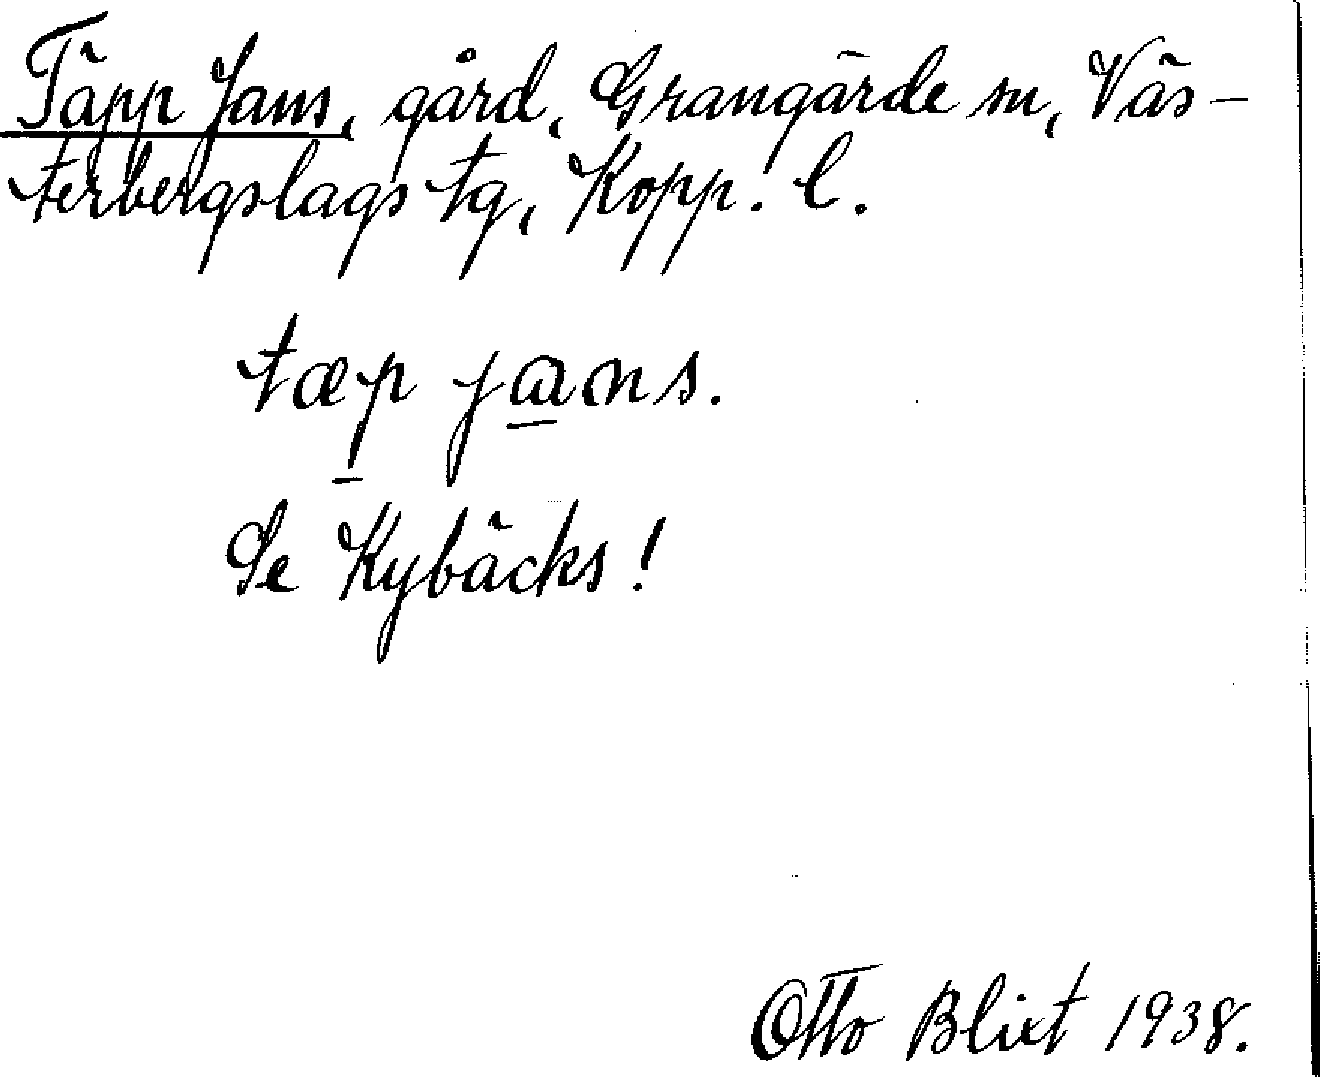 Täpp Jans, gård, Grangärde sn, Väs-
terbergslags tg, Kopp. l.
tæp jans.
Se Kybäcks!
Otto Blixt 1938.